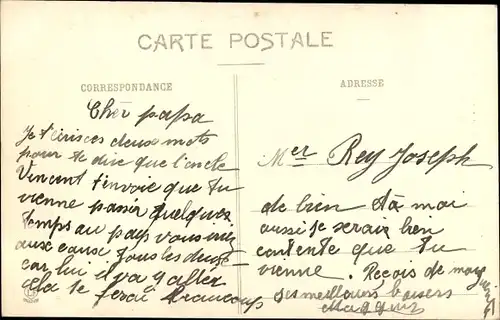 CARTE POSTALE
CORRESPONDANCE
ADRESSE
Cher papa
Je t'ecrisces deuse mots
pour te dire que l'oncle
Vincent t'envoie que tu
vienne passer quelques
temps au pays vous
ause tous les
car lui il va y aller
te ferai beaucoup
Mer Rey Joseph
de bien à moi
aussi je serais bien
contente que tu
vienne. Reçois de moi
ses meilleurs baisers